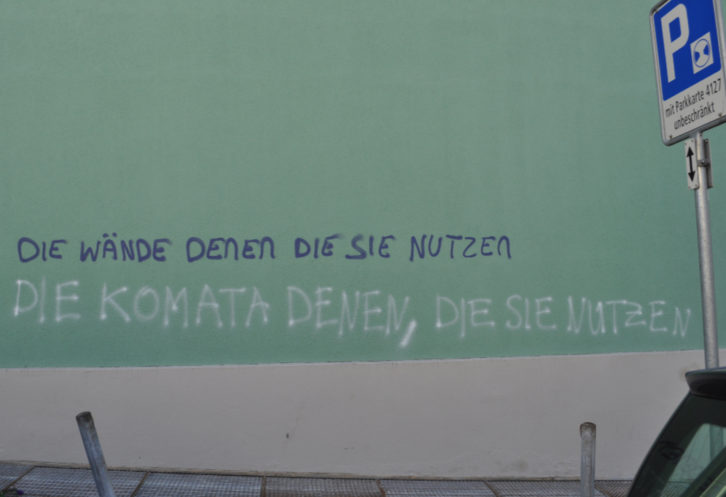 P
mit Parkkarte 4127
unbeschränkt
DIE WÄNDE DENEN DIE SIE NUTZEN
DIE KOMATA DENEN, DIE SIE NUTZEN